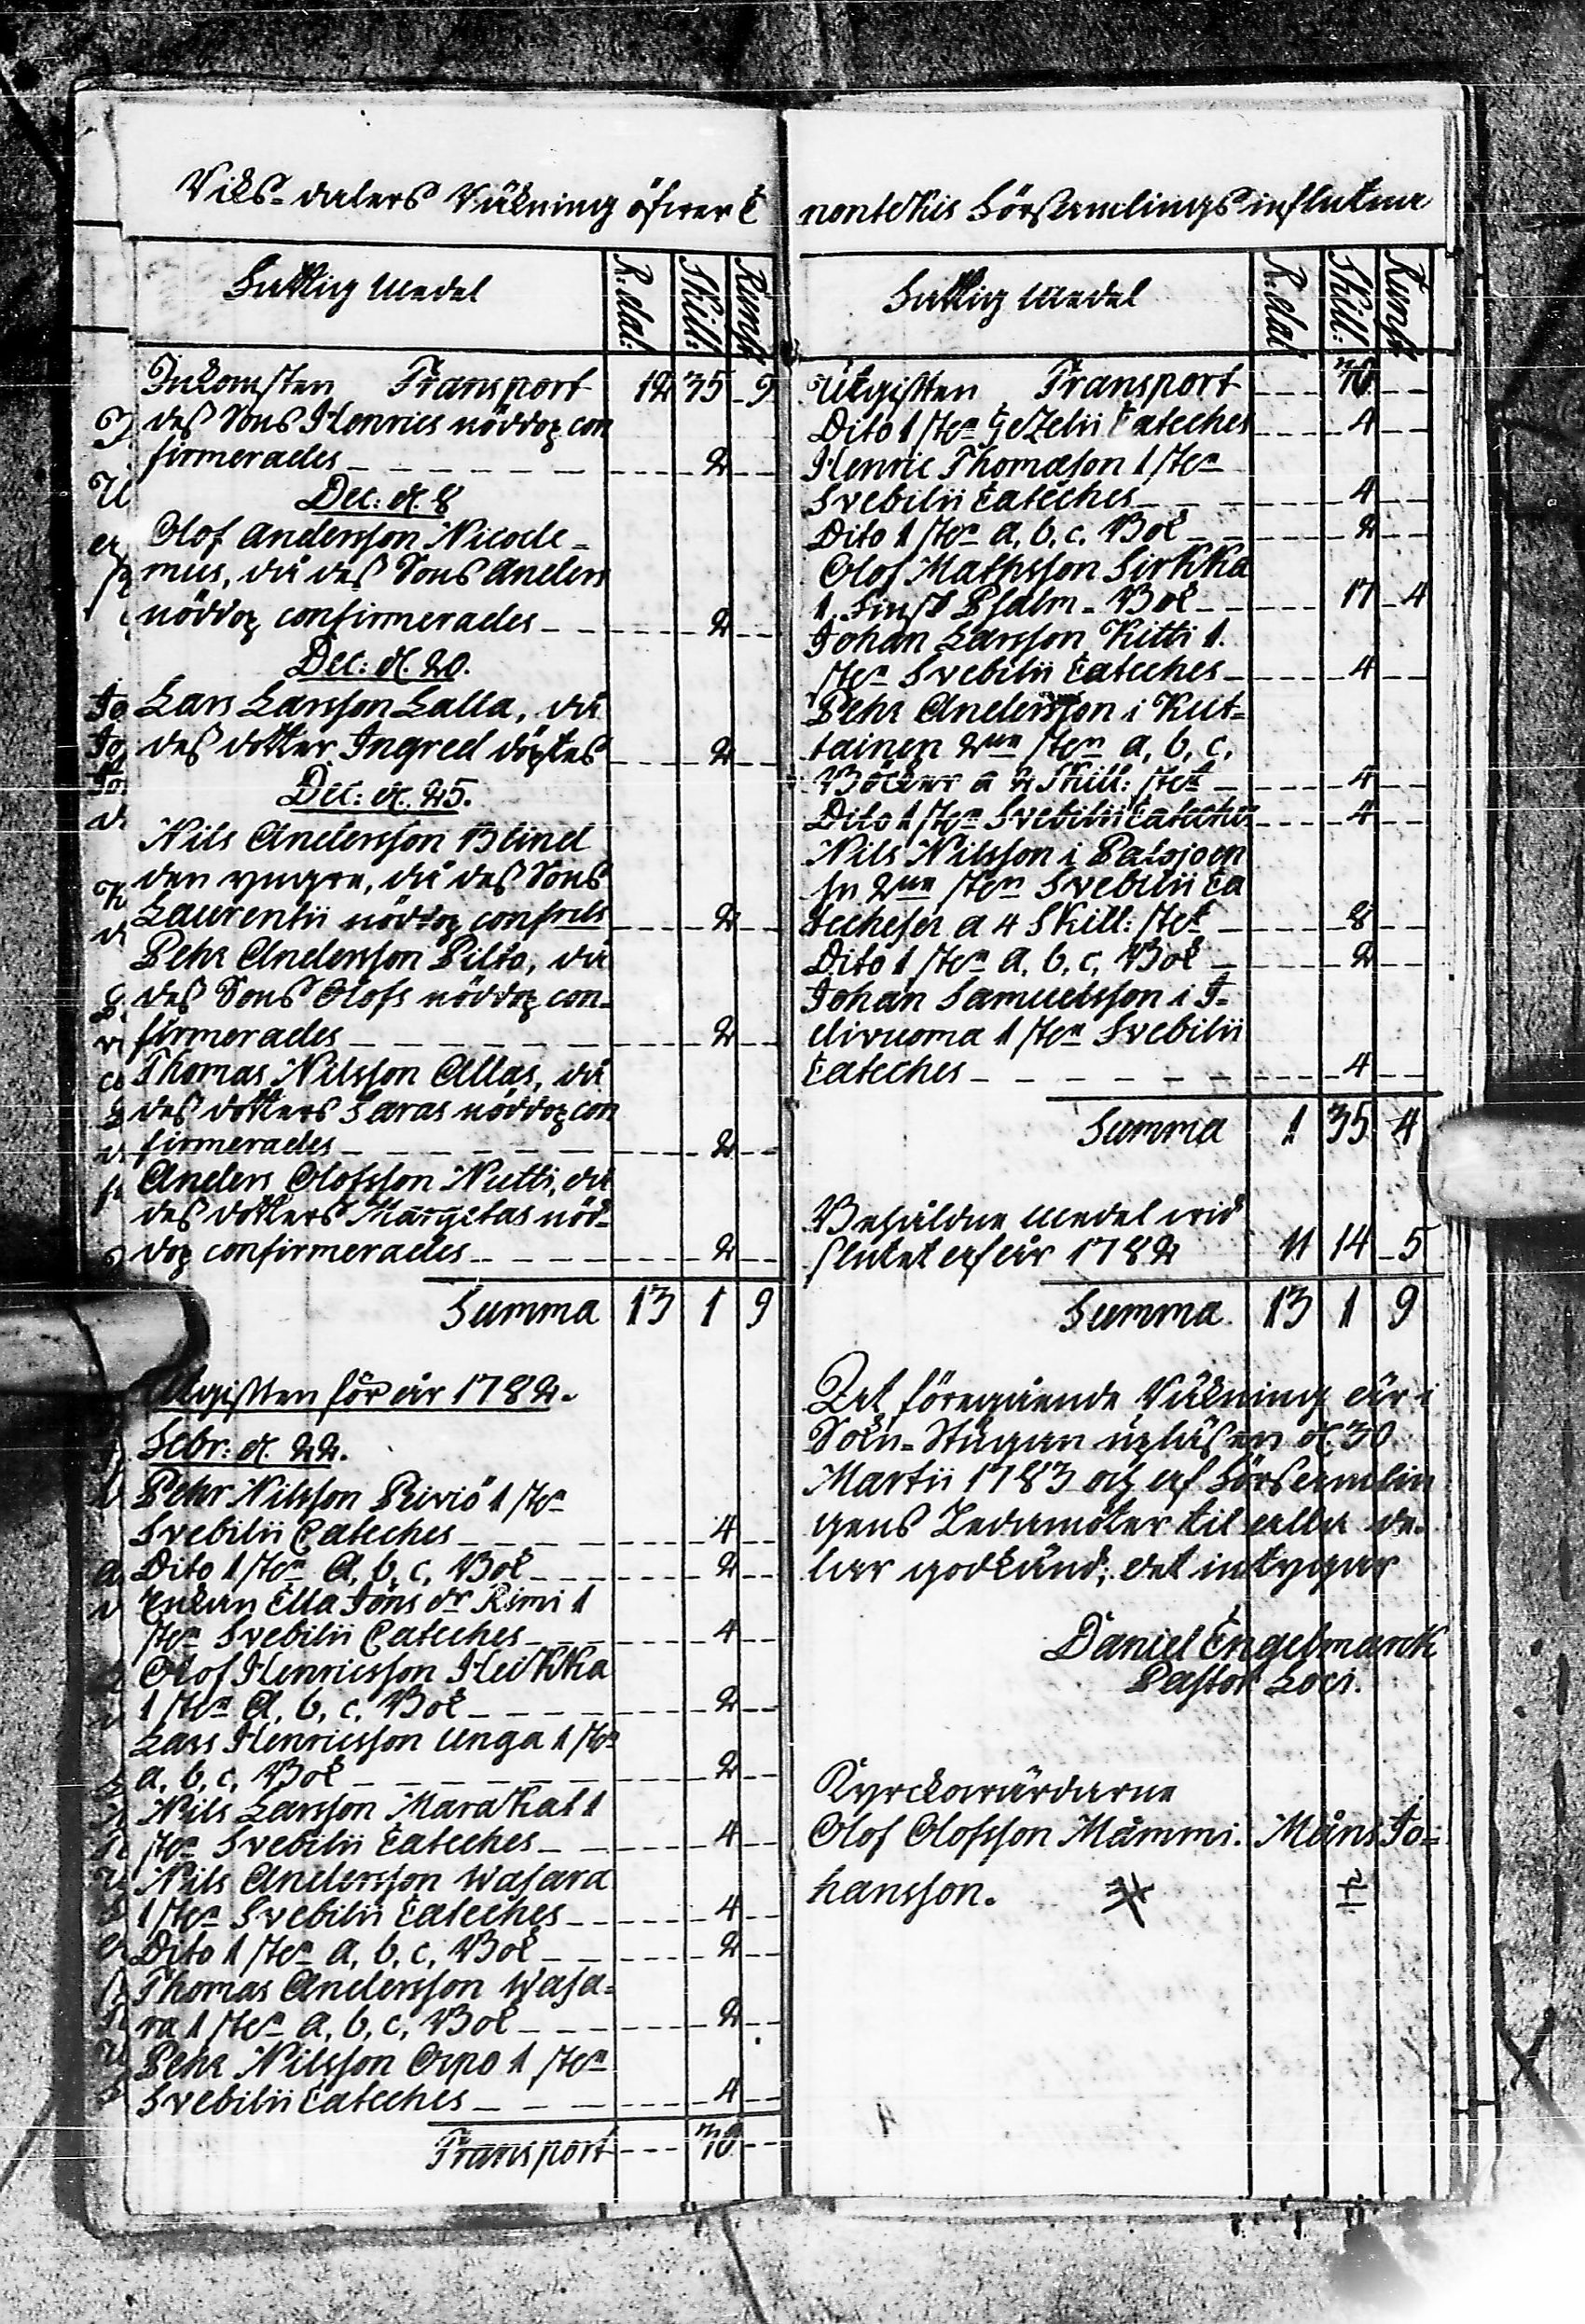 Riks-dalers Räkning öfwer E
Fattig Medel R.dal: Skill: Runst
Inkomsten Transport 12 35 9
des Sons Henrics nöddop con
firmerades 2
Dec: d. 8
Olof Andersson Nicode=
mus, då des Sons Anders
nöddop confirmerades 2
Dec: d. 20.
Lars Larsson Lalla, då
des dotter Ingred döptes 2
Dec: d. 25.
Nils Andersson Blind
den yngre, då des Sons
Laurentii nöddop confrds 2
Pehr Andersson Pilto, då
des Sons Olofs nöddop con-
firmerades 2
Thomas Nilsson Allas, då
des dotters Saras nöddop con
firmerades 2
Anders Olofsson Nutti, då
des dotters Margetas nöd-
dop confirmerades 2
Summa 13 1 9
Utgiften för år 1782.
Febr: d. 22.
Pehr Nilsson Riviö 1 st:n
Svebilii Cateches 4
Dito 1 st:n A, b, c, Bok 2
Enkan Ella Jöns dr Rimi 1
st:n Svebilii Cateches 4
Olof Henricsson Heikka
1 st:n A, b, c, Bok 2
Lars Henricsson Unga 1 st:n
a, b, c, Bok 2
Nils Larsson Marakat 1
st:n Svebilii Cateches 4
Nils Andersson Wasara
1 st:n Svebilii Cateches 4
Dito 1 st:n a, b, c, Bok 2
Thomas Andersson Wasa=
ra 1 st:n a, b, c, Bok 2
Pehr Nilsson Orpo 1 st:n
Svebilii Cateches 4
Transport 30
nontekis Församlings influtna
Fattig Medel R.dal: Skill: Runst
Utgiften Transport 30
Dito 1 st:n Gezelii Cateches 4
Henric Thomæson 1 st:n
Svebilii Cateches 4
Dito 1 st:n a, b, c, Bok 2
Olof Mathsson Sirkka
1. Finsk Psalm-Bok 17 4
Johan Larsson Kitti 1.
st:n Svebilii Cateches 4
Pehr Andersson i Kut=
tainen 2ne st:n a, b, c,
Böcker a 2 Skill: stet 4
Dito 1 st:n Svebilii Cateches 4
Nils Nilsson i Palojoen
su 2ne st:n Svebilii Ca
techeser a 4 Skill: stet 8
Dito 1 st:n a, b, c, Bok 2
Johan Samuelsson i I=
divuoma 1 st:n Svebilii
Cateches 4
Summa 1 35 4
Behåldne Medel wid
slutet af år 1782 11 14 5
Summa 13 1 9
Det föregående Räkning är i
Sokn-Stugan upläsen d. 30
Martii 1783 och af Församlin
gens Ledamöter til alla de-
lar godkänd; det intygar
Daniel Engelmarck
Pastor Loci.
Kyrckowärdarne
Olof Olofsson Mämmi. Måns Jo=
hansson.